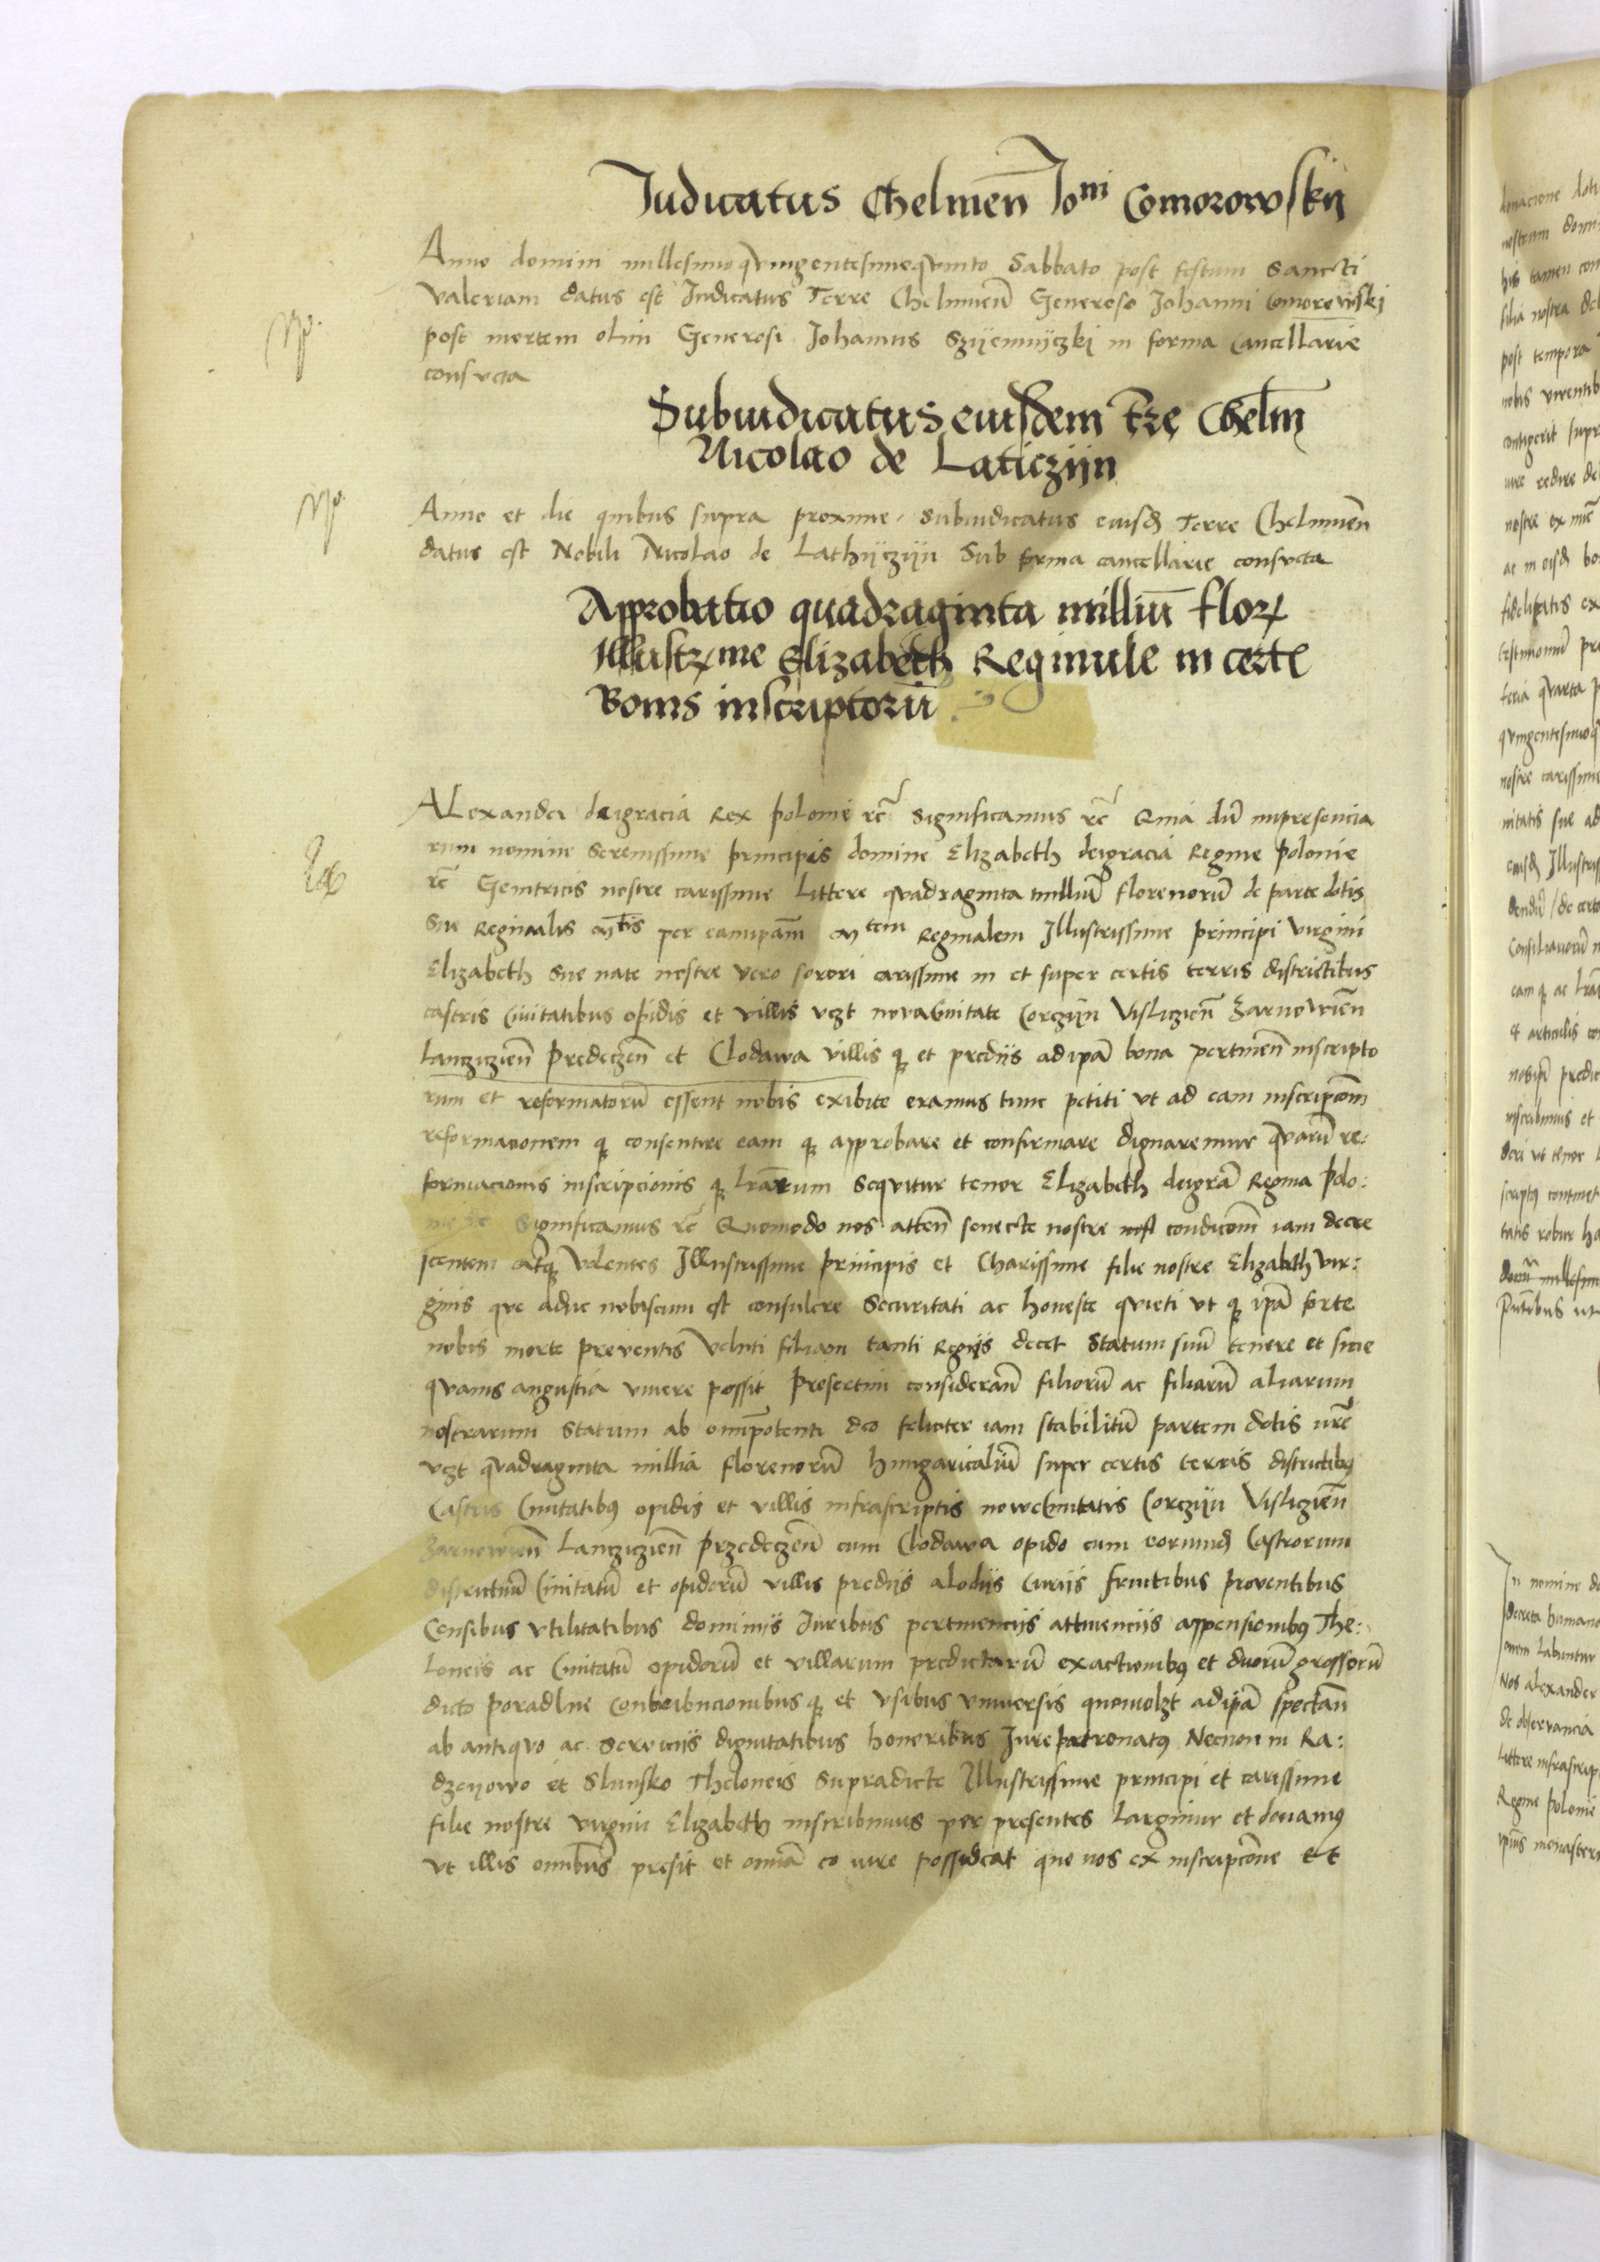 Iudicatus Chelmen̄ Joni Comorowskij
Anno domini millesimoqvingentesimoqvinto Sabbato post festum Sancti
Valeriani datus est Iudicatus Terre Chelmmen̄ Generoso Johanni Comorewski
post mortem olim Generosi Johannis Szijemijczki in forma cancellarie
consveta
Subiudicatus eiusdem Tre Chelm̄
Nicolao de Laticzijn
Anno et die quibus supra proxime Subiudicatus eiusd Terre Chelmmen̄
datus est Nobili Nicolao de Lathijczijn Sub forma cancellarie consveta
Approbatio quadraginta milliū flor
Illustrme Elizabeth Reginule in certe
Bonis inscriptorū
Alexander deigracia Rex polonie rc̄ Significamus rc̄ Quia dū inpresencia
rum nomine Serenissime principis domine Elizabeth deigracia Regine polonie
rc̄ Genitricis nostre carissime littere qvadraginta milliū florenorū de parte dotis
Sue Reginalis Mtis per eamipām Mtem Reginalem Illustrissime principi virgini
Elizabeth Sue nate nostre vero sorori carissime in et super certis terris districtibus
castris Civitatibus opidis et villis vzt nova Civitate Corczijn Vislicien̄ Zarnowien̄
lanciczien̄ Predeczen̄ et Clodawa villis q et prediis ad ipā bona pertinen̄ inscripto
rum et reformatorū essent nobis exibite eramus tunc petiti vt ad eam inscripcōm
reformacionem q consentire eam q approbare et confirmare dignaremur qvarū re:
formacionis inscripcionis q lrārum Seqvitur tenor Elizabeth deigrā Regina polo:
nie rc̄ Significamus rc̄ Quomodo nos atten̄ senecte nostre condicōm iam decre
scentem Atq volentes Illustrissime principis et Charissime filie nostre Elizabeth vir:
ginis que adhuc nobiscum est consulere Securitati ac honeste qvieti vt q ipā forte
nobis morte preventis veluti filiam tanti Regis decet Statum suū tenere et sine
qvavis angustia vivere possit presertim consideran̄ filiorū ac filiarū aliarum
nostrarum Statum ab omīpotenti deo feliciter iam stabilitū partem dotis nrē
vzt qvadraginta millia florenorū hungaricaliū super certis terris districtibus
Castris Civitatibus opidis et villis infrascriptis nowe Civitatis Corczijn Vislicien̄
Zarnowien̄ lanciczien̄ przedeczen̄ cum Clodawa opido cum eorund Castrorum
districtuū Civitatū et opidorū villis prediis alodiis Curiis fructibus proventibus
Censibus vtilitatibus dominiis Iuribus pertinenciis attinenciis appensionibus The:
loneis ac Civitatū opidorū et villarum predictarū exactionibus et duorū grossorū
dicto poradlne Contribucionibus q et vsibus vniversis quomolzt adipā spectan̄
ab antiqvo ac Serviciis dignitatibus honeribus Iure patronatus Necnon in Ra:
dzeyowo et Slunsko Theloneis Supradicte Illustrissime principi et carissime
filie nostre virgini Elizabeth inscribimus per presentes largimur et donamus
vt illis omībus presit et omīa eo iure possideat que nos ex inscripcōne et